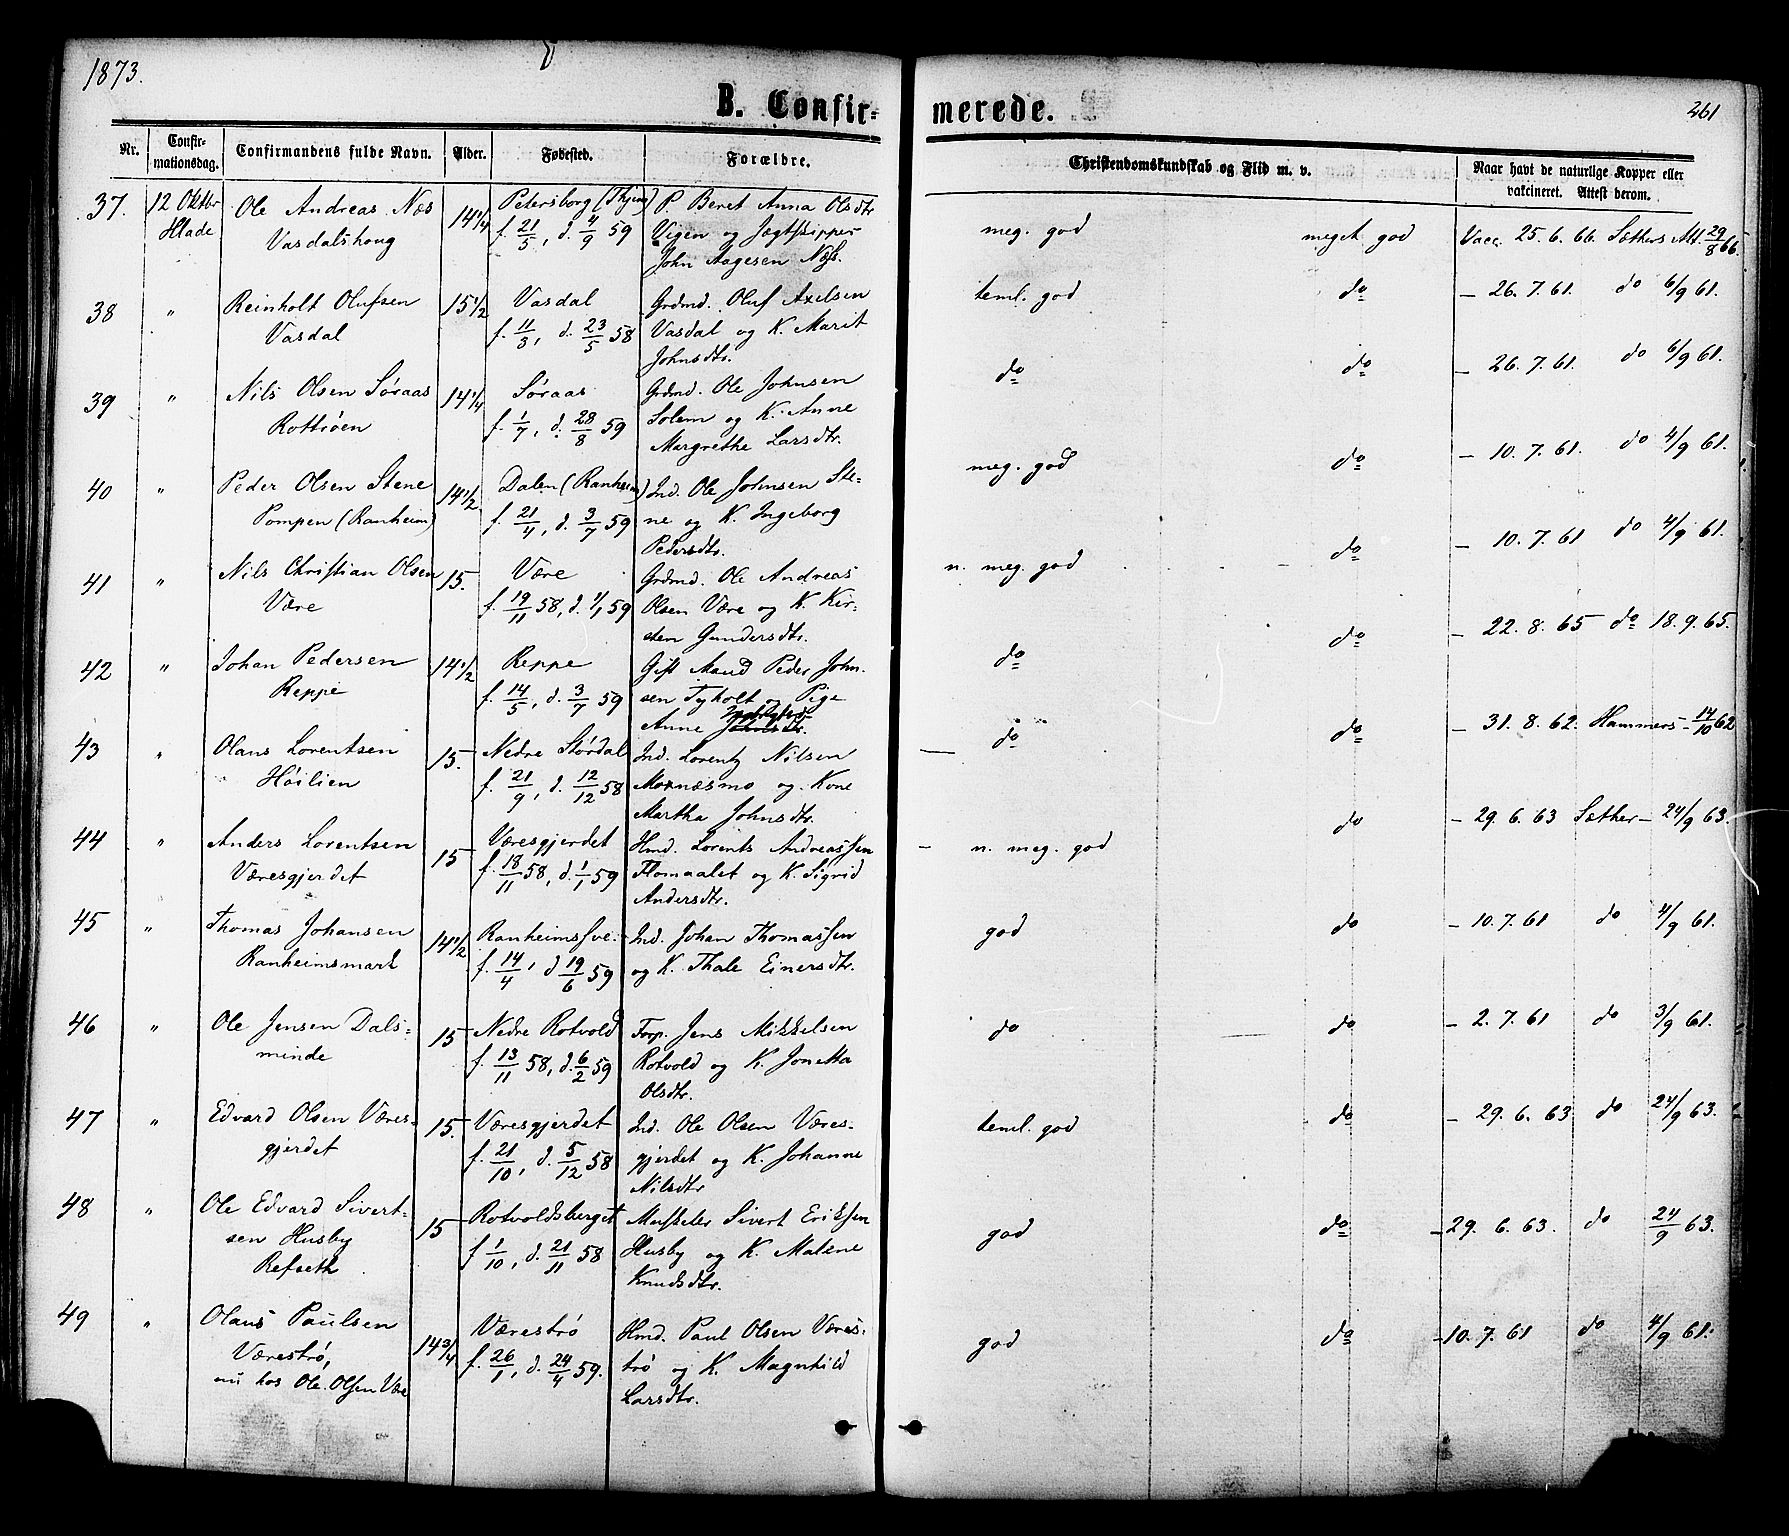 1873.
B. Confir- merede.
261
Nr.
Confir-
mationsdag.
Confirmandens fulde Navn.
Alder.
Fødested.
Forældre.
Christendomskundskab og Flid m. v.
Naar havt de naturlige Kopper eller
vakcineret. Attest derom.
37. 12 Oktbr Ole Andreas Næs 14 1/4 Petersborg (Thjem) P. Beret Anna Olsdtr meg. god meget god Vacc. 25. 6. 66. Sæthers Att. 29/8 66.
Hlade Vasdalshoug f. 21/5, d. 4/9 59 Vigen og Jægtskipper
John Aagesen Næs.
38 " Reinholt Olufsen 15 1/2 Vasdal Grdmd. Oluf Axelsen teml. god do — 26. 7. 61. do 6/9 61.
Vasdal f. 11/3, d. 23/5 58 Vasdal og K. Marit
Johnsdtr.
39 " Nils Olsen Søraas 14 1/4 Søraas Grdmd. Ole Johnsen do do — 26. 7. 61. do 6/9 61.
Rottiøen f. 1/7, d. 28/8 59 Solem og K. Anne
Margrethe Larsdtr.
40 " Peder Olsen Stene 14 1/2 Dalen (Ranheim) Ind. Ole Johnsen Ste- meg. god do — 10. 7. 61. do 4/9 61.
Pompen (Ranheim) f. 21/4, d. 3/7 59 ne og K. Ingeborg
Pedersdtr.
41 " Nils Christian Olsen 15. Være Grdmd. Ole Andreas n. meg. god do — 10. 7. 61 do 4/9 61.
Være f. 19/11 58, d. 1/1 59 Olsen Være og K. Kir-
sten Gundersdtr.
42 " Johan Pedersen 14 1/2 Reppe Gift Mand Peder John- do do — 22. 8. 65 do 18. 9. 65.
Reppe f. 14/5, d. 3/7 59 sen Tyholt og Pige
Anne Johnsdtr.
43 " Olaus Lorentsen 15. Nedre Størdal Ind. Lorentz Nilsen — do do — 31. 8. 62. Hammers — 14/10 62
Høilien f. 21/9, d. 12/12 58 Mornæsmo og Kone
Martha Johnsdtr.
44 " Anders Lorentsen 15 Væresgjerdet Hmd. Lorents Andreassen — n. meg. god do — 29. 6. 63 Sæther — 24/9 63.
Væresgjerdet f. 18/11 58, d. 1/1 59 Flomaalet og K. Sigrid
Andersdtr.
45 " Thomas Johansen 14 1/2 Ranheimssve. Ind. Johan Thomassen god do — 10. 7. 61 do 4/9 61.
Ranheimsmark f. 14/4, d 19/6 59 og K. Thale Einersdtr.
46 " Ole Jensen Dals- 15 Nedre Rotvold Forp. Jens Mikkelsen do do — 2. 7. 61 do 3/9 61.
minde f. 13/11 58, d. 6/2 59 Rotvold og K. Jonetta
Olsdtr.
47 " Edvard Olsen Være- 15. Væresgjerdet Ind. Ole Olsen Væres- teml. god do — 29. 6. 63 do 24/9 63.
gjerdet f. 21/10, d. 5/12 58 gjerdet og K. Johanne
Nilsdtr
48 " Ole Edvard Sivert- 15 Rotvoldsberget Musketer Sivert Eriksen god do — 29. 6. 63. do 24/9 63.
sen Husby f 1/10, d. 21/11 58 Husby og K. Malene
Refseth Knudsdtr.
49 " Olaus Paulsen 14 3/4 Værestrø Hmd. Paul Olsen Væres- god do — 10. 7. 61 do 4/9 61.
Værestrø, f. 26/1, d. 24/4 59. trø og K. Magnhild
nu hos Ole Olsen Være Larsdtr.